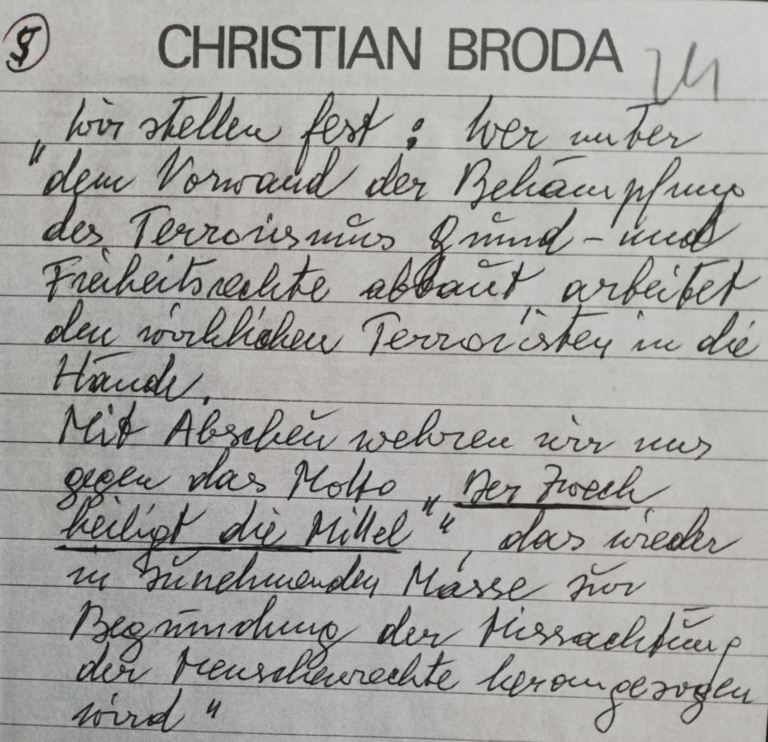 CHRISTIAN BRODA
„Wir stellen fest: Wer unter
dem Vorwand der Bekämpfung
des Terrorismus Grund- und
Freiheitsrechte abbaut, arbeitet
den wirklichen Terroristen in die
Hände.
Mit Abscheu wehren wir uns
gegen das Motto „Der Zweck
heiligt die Mittel"", das wieder
in zunehmenden Masse zur
Begründung der Missachtung
der Menschenrechte herangezogen
wird"